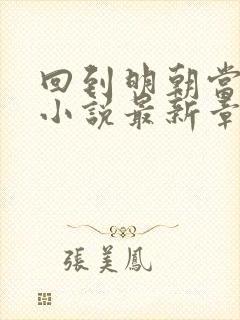 回到明朝當
小說最新章
張美鳳